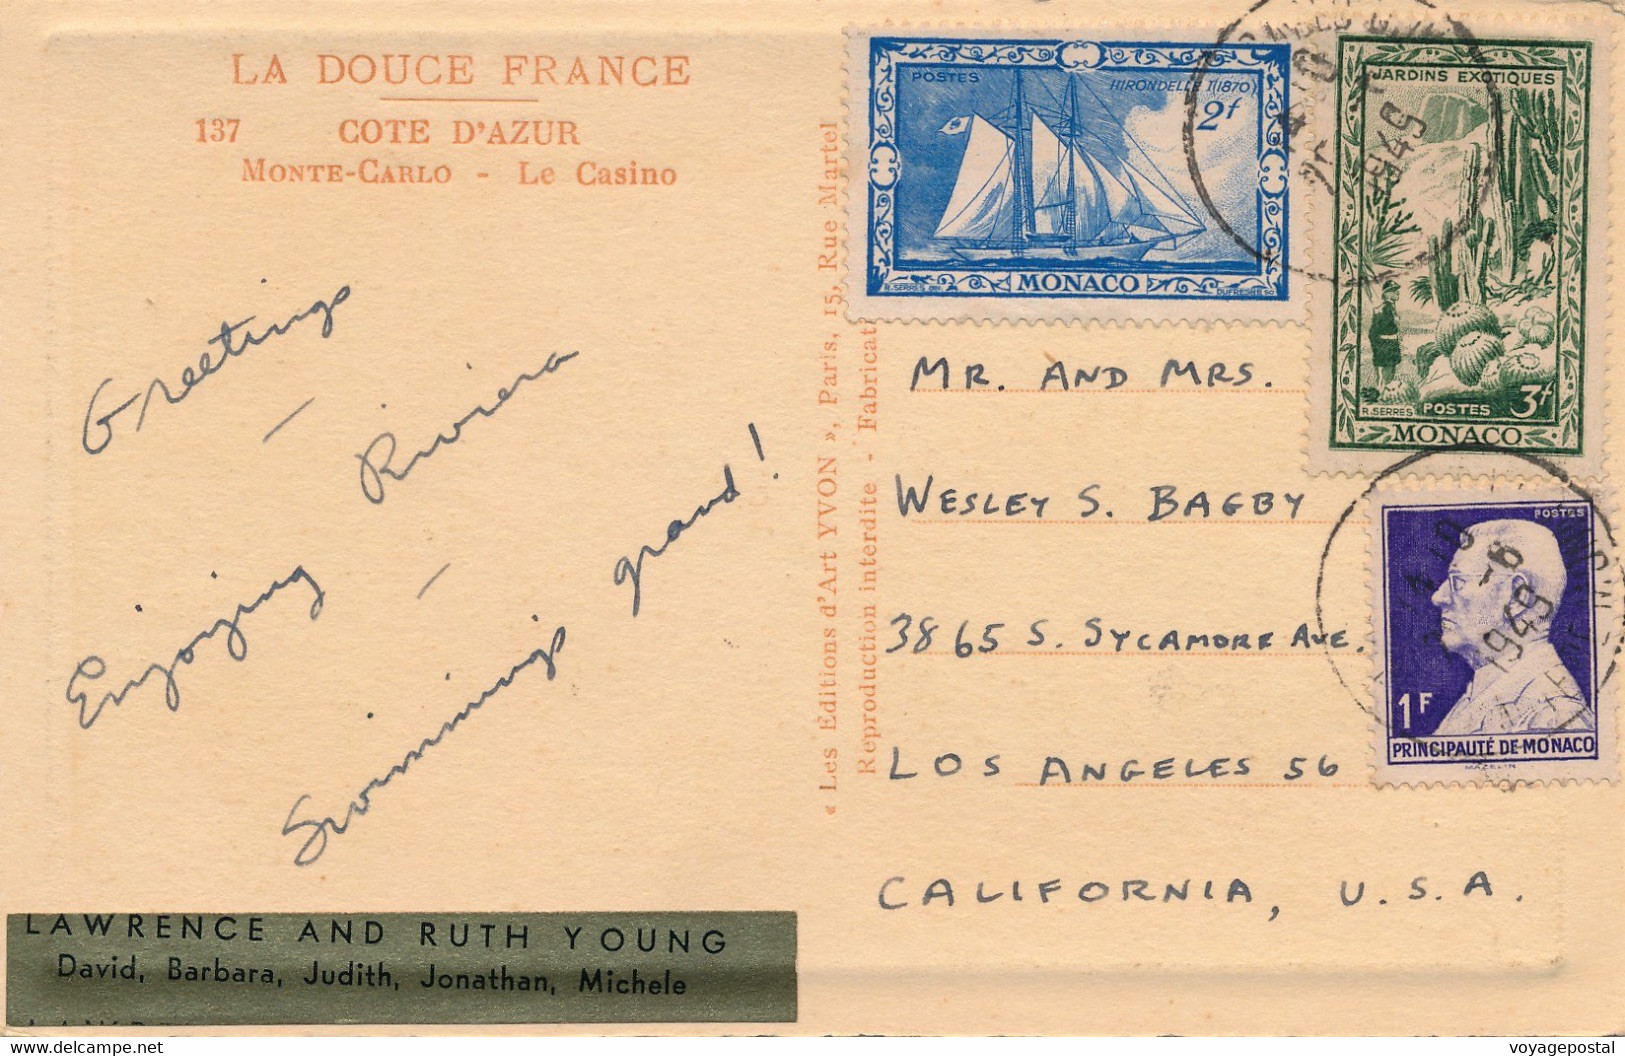 LA DOUCE FRANCE
137 COTE D'AZUR
MONTE-CARLO - LE CASINO
Greetings -
Enjoying Riviera -
Swimming grand!
LAWRENCE AND RUTH YOUNG
David, Barbara, Judith, Jonathan, Michele
« Les Editions d'Art YVON », Paris, 15, Rue Martel
Reproduction interdite - Fabricati
POSTES
HIRONDELLE I (1870)
2f
MONACO
R. SERRES
DUFRESNE SC
JARDINS EXOTIQUES
R. SERRES POSTES 3f
MONACO
1949
MR. AND MRS.
WESLEY S. BAGBY
3865 S. SYCAMORE AVE.
LOS ANGELES 56
CALIFORNIA, U.S.A.
POSTES
1F
PRINCIPAUTÉ DE MONACO
MAZELIN
-6
1949
voyagepostal